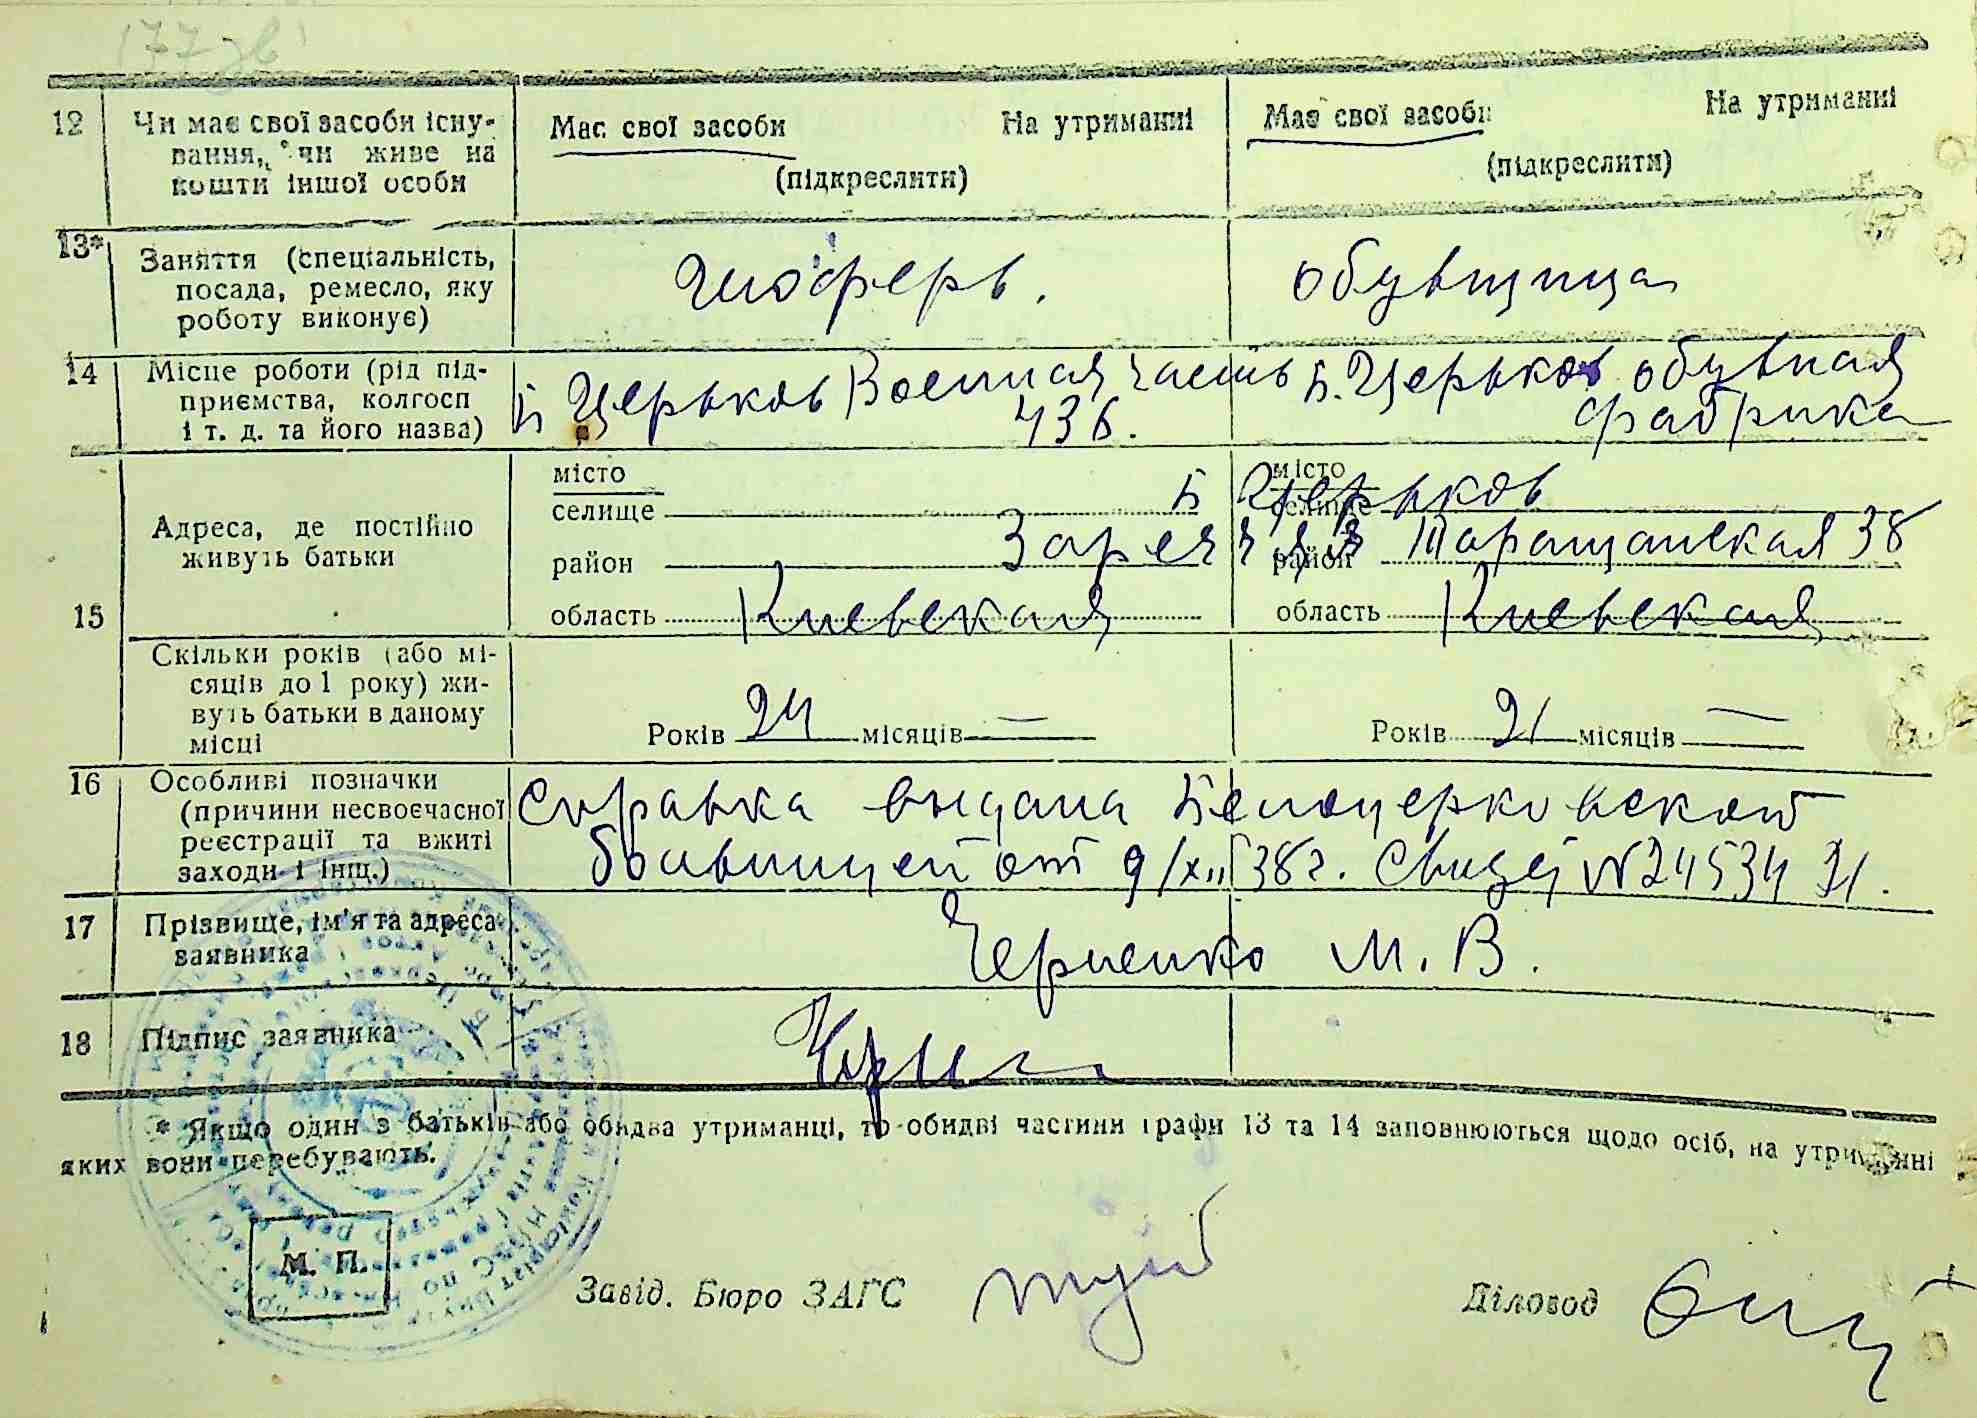 177 зв
12 Чи має свої засоби існу-
вання, чи живе на
кошти іншої особи
Має свої засоби На утриманні
(підкреслити)
Має свої засоби На утриманні
(підкреслити)
13* Заняття (спеціальність,
посада, ремесло, яку
роботу виконує)
Шоферъ.
обувщица
14 Місце роботи (рід під-
приємства, колгосп
і т. д. та його назва)
Б Церьков Военная часть
436.
Б. Церьков обувная
фабрика
15 Адреса, де постійно
живуть батьки
місто
селище
район
область Киевская
місто
селище
район
область Киевская
Б Церьков
Заречья Таращанская 38
Скільки років (або мі-
сяців до 1 року) жи-
вуть батьки в даному
місці
Років 24 місяців —
Років 21 місяців —
16 Особливі позначки
(причини несвоєчасної
реєстрації та вжиті
заходи і інш.)
Справка выдана Белоцерковской
больницей от 9/XII 38г. Свидет №24534 21.
17 Прізвище, ім'я та адреса
заявника
Черненко М. В.
18 Підпис заявника
* Якщо один з батьків або обидва утриманці, то обидві частини графи 13 та 14 заповнюються щодо осіб, на утриманні
яких вони перебувають.
М. П.
Завід. Бюро ЗАГС
Діловод